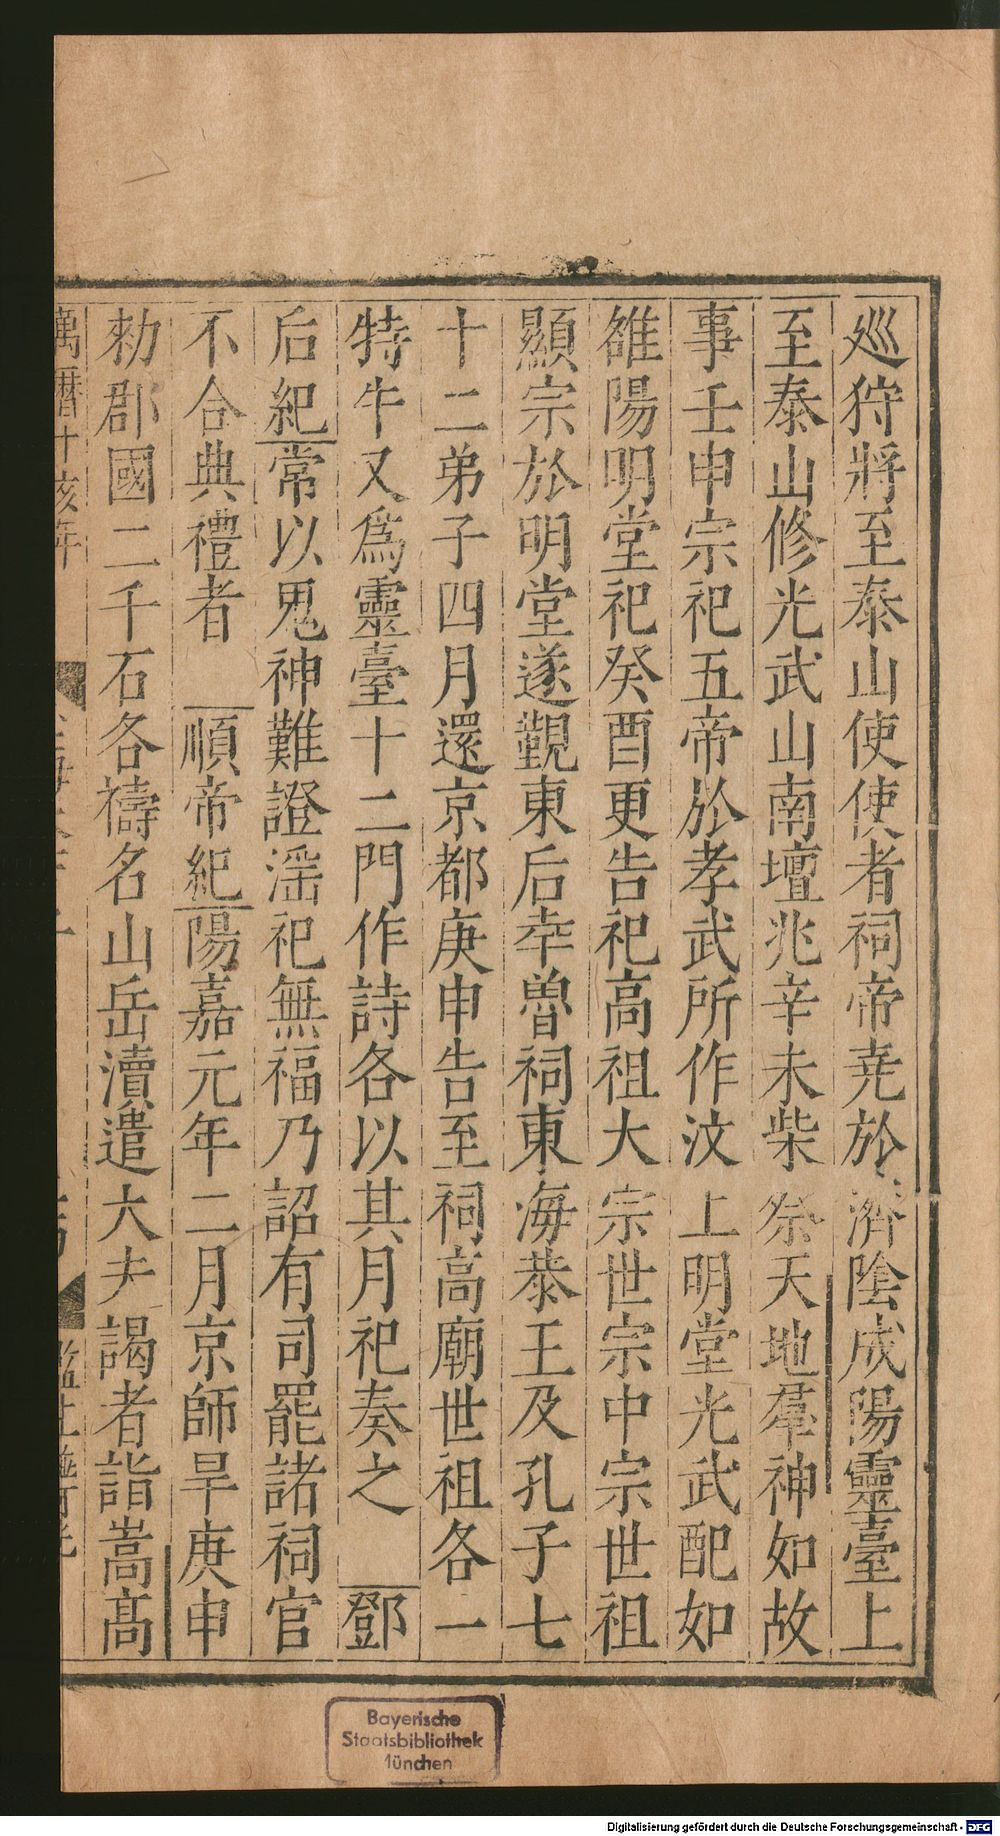 巡狩將至泰山使使者祠帝堯於濟陰成陽靈臺上
至泰山修光武山南壇兆辛未柴祭天地羣神如故
事壬申宗祀五帝於孝武所作汶上明堂光武配如
雒陽明堂祀癸酉更告祀高祖大宗世宗中宗世祖
顯宗於明堂遂覲東后幸魯祠東海恭王及孔子七
十二弟子四月還京都庚申告至祠高廟世祖各一
特牛又爲靈臺十二門作詩各以其月祀奏之 鄧
后紀常以鬼神難證淫祀無福乃詔有司罷諸祠官
不合典禮者 順帝紀陽嘉元年二月京師旱庚申
勑郡國二千石各禱名山岳瀆遣大夫謁者詣嵩高
萬曆十 年
Bayerische
Staatsbibliothek
München
Digitalisierung gefördert durch die Deutsche Forschungsgemeinschaft - DFG